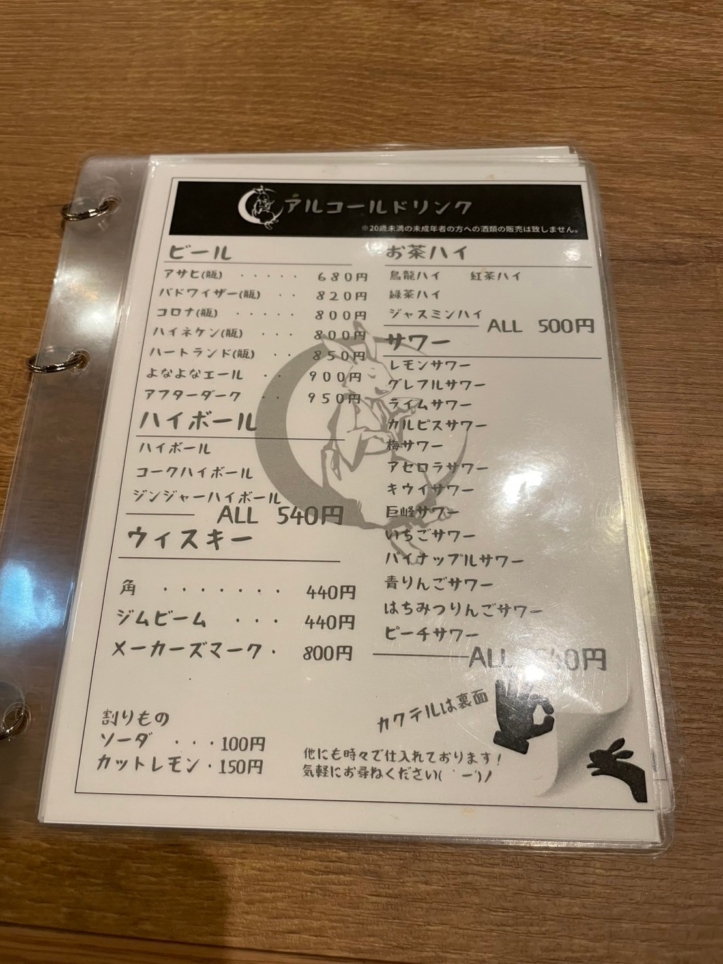 アルコールドリンク
※20歳未満の未成年者の方への酒類の販売は致しません。
ビール
アサヒ(瓶) ・・・・・ 680円
バドワイザー(瓶) ・・ 820円
コロナ(瓶) ・・・・・ 800円
ハイネケン(瓶) ・・ 800円
ハートランド(瓶) ・・ 850円
よなよなエール ・・ 900円
アフターダーク ・・ 950円
ハイボール
ハイボール
コークハイボール
ジンジャーハイボール
ALL 540円
ウィスキー
角 ・・・・・・・ 440円
ジムビーム ・・・ 440円
メーカーズマーク・ 800円
割りもの
ソーダ ・・・100円
カットレモン・150円
お茶ハイ
烏龍ハイ 紅茶ハイ
緑茶ハイ
ジャスミンハイ
ALL 500円
サワー
レモンサワー
グレフルサワー
ライムサワー
カルピスサワー
梅サワー
アセロラサワー
キウイサワー
巨峰サワー
いちごサワー
パイナップルサワー
青りんごサワー
はちみつりんごサワー
ピーチサワー
ALL 40円
カクテルは裏面
他にも時々で仕入れております!
気軽にお尋ねください( ˙-˙)ノ